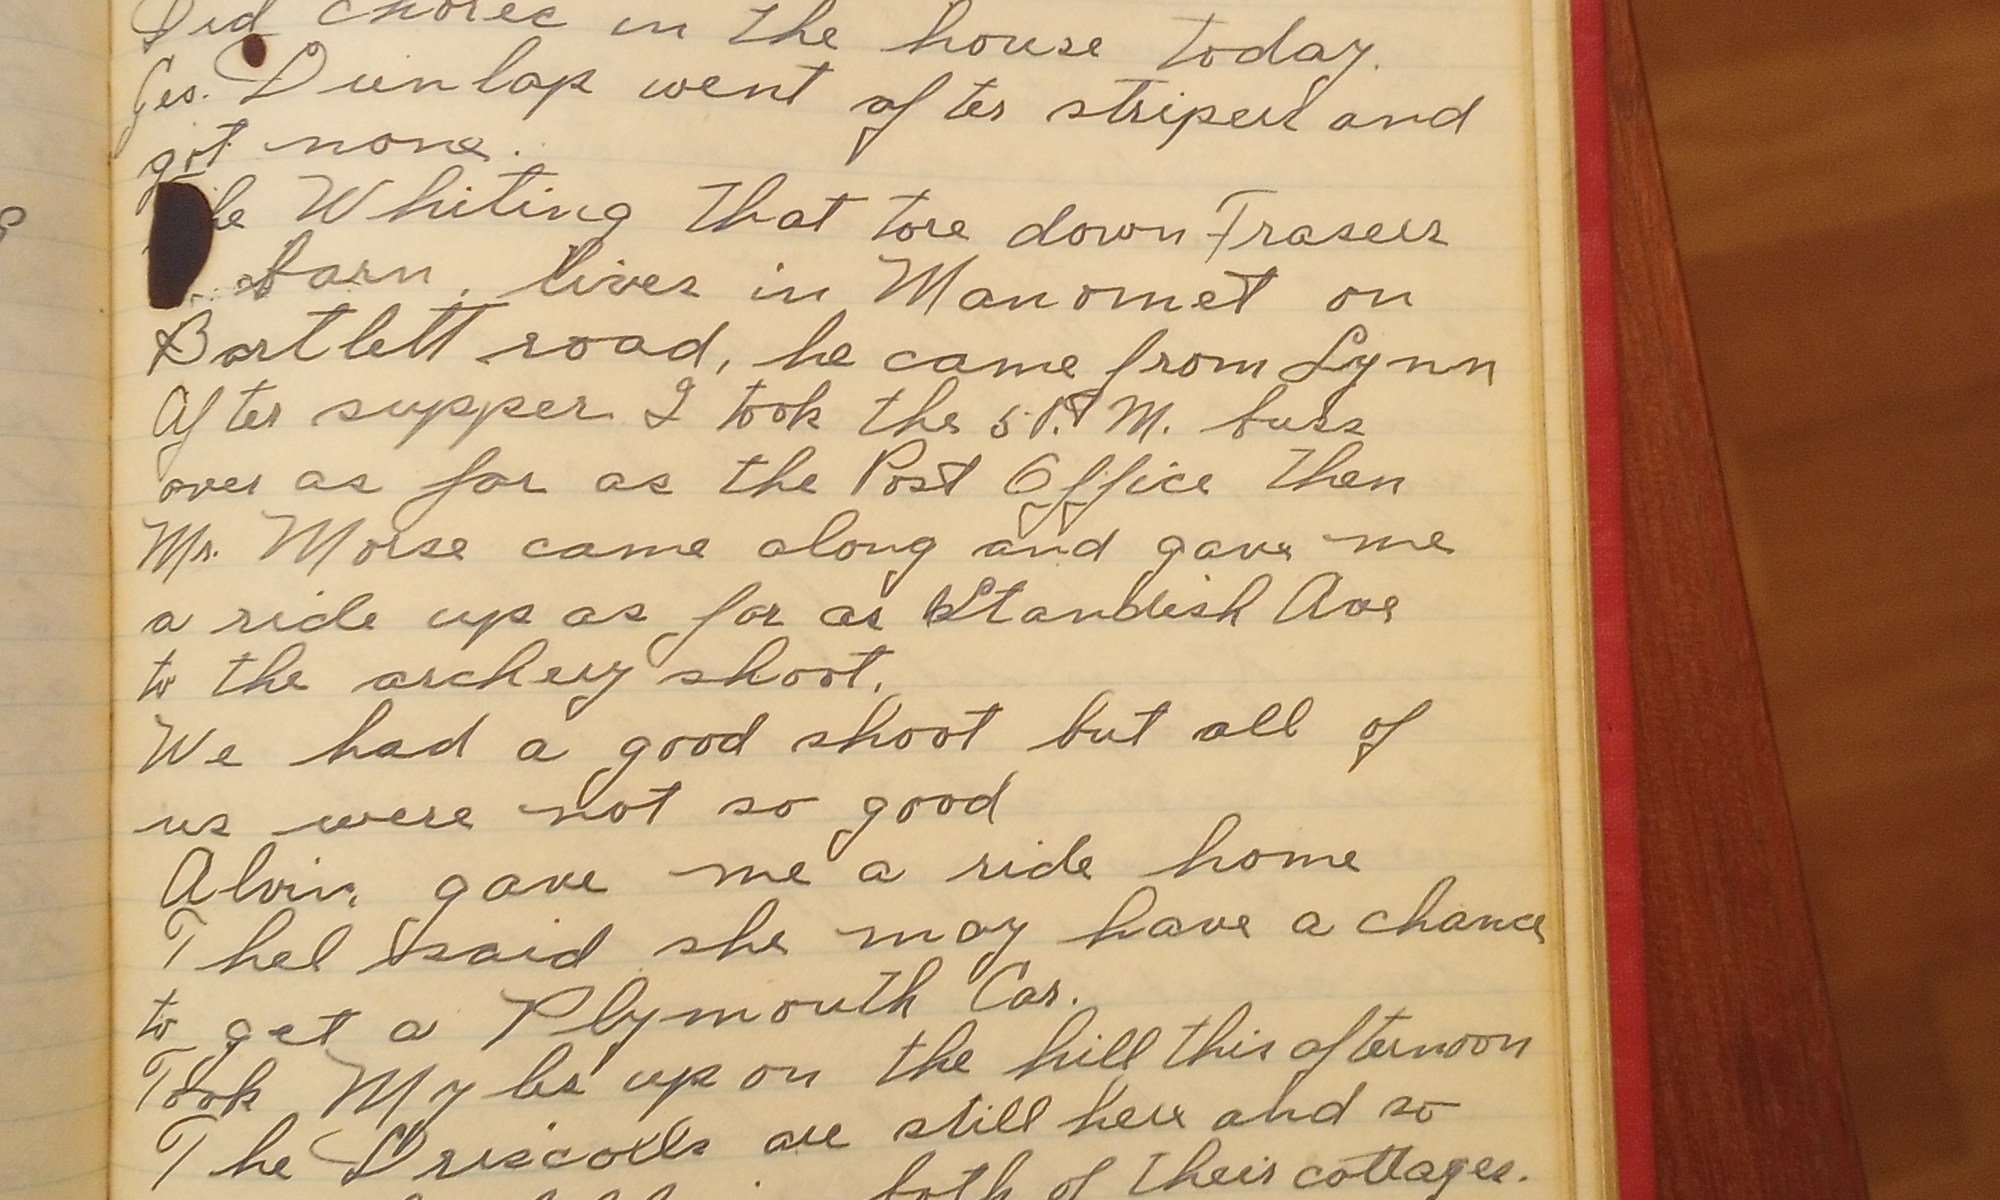 Did chores in the house today.
Geo. Dunlap went after stripers and
got none.
Whiting that tore down Frasers
barn, lives in Manomet on
Bartlett road, he came from Lynn
After supper I took the 5 P.M. buss
over as far as the Post Office then
Mr. Morse came along and gave me
a ride up as far as Standish Ave
to the archery shoot.
We had a good shoot but all of
us were not so good
Alvin gave me a ride home
Thel said she may have a chance
to get a Plymouth Car.
Took Myles up on the hill this afternoon
The Driscolls are still here and so
both of their cottages.